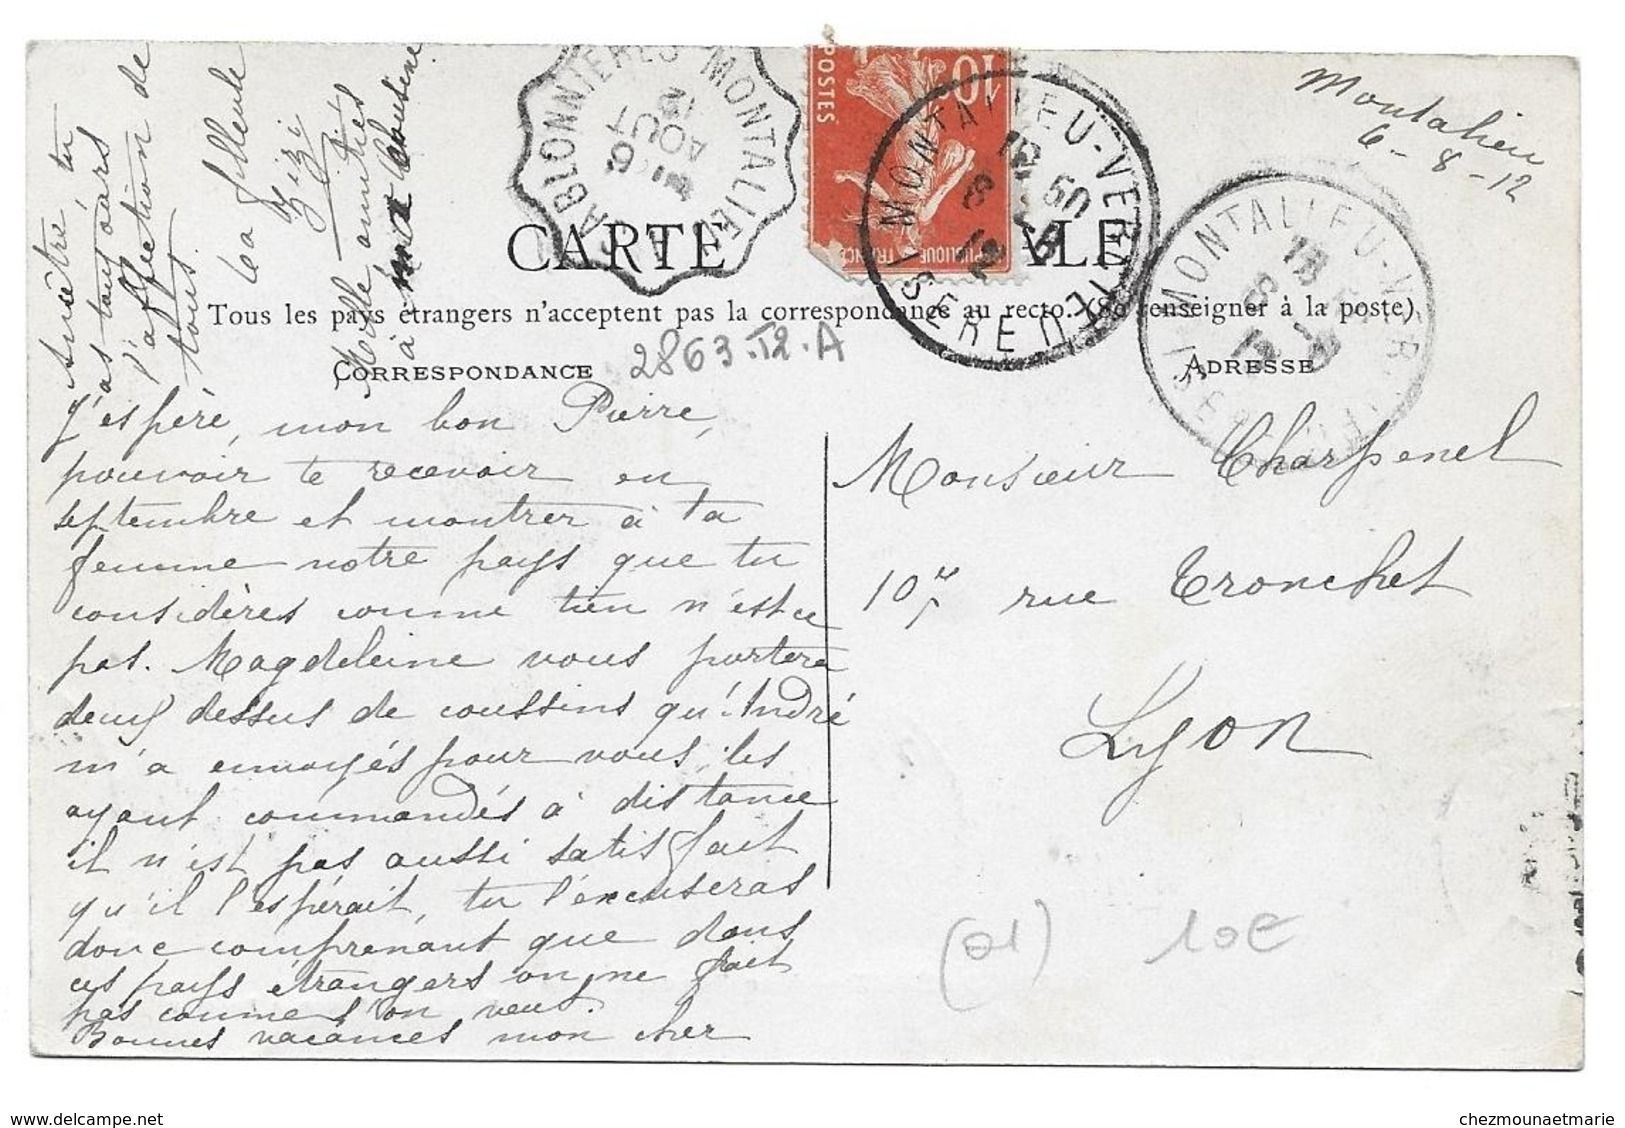 Montalieu
6 - 8 - 12
SABLONNIERES A MONTALIEU
6
AOUT
12
POSTES
10
REPUBLIQUE FRANCAISE
MONTALIEU-VERCIEU
12 50
6 - 8
12
ISERE
MONTALIEU-VERCIEU
18
6 - 8
12
ISERE
CARTE POSTALE
Tous les pays étrangers n'acceptent pas la correspondance au recto. (Se renseigner à la poste)
CORRESPONDANCE
2863.T2.A
ADRESSE
J'espère, mon bon Pierre,
pouvoir te recevoir en
septembre et montrer à ta
femme notre pays que tu
considères comme tien n'est ce
pas. Magdeleine vous portera
deux dessus de coussins qu'André
m'a envoyés pour vous, les
ayant commandés à distance
il n'est pas aussi satisfait
qu'il l'espérait, tu l'excuseras
donc comprenant que dans
ces pays étrangers on ne fait
pas comme l'on veut.
Bonnes vacances mon cher
tu
as toujours
l'affection de
tous
La filleule
Zizi
Mille amitiés
à ma
Monsieur Charpenel
107 rue Tronchet
Lyon
(01)
10€
delcampe.net
chezmounaetmarie